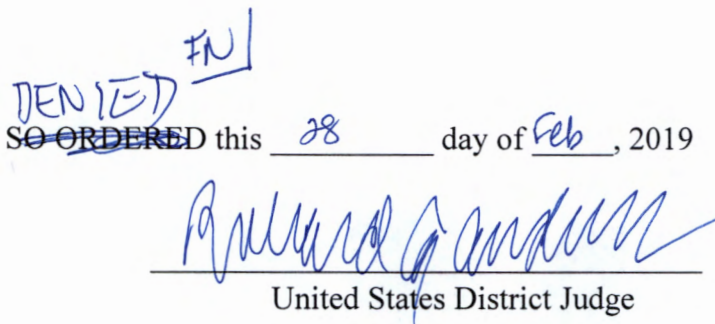 FN
DENIED
SO ORDERED this 28 day of Feb, 2019
United States District Judge